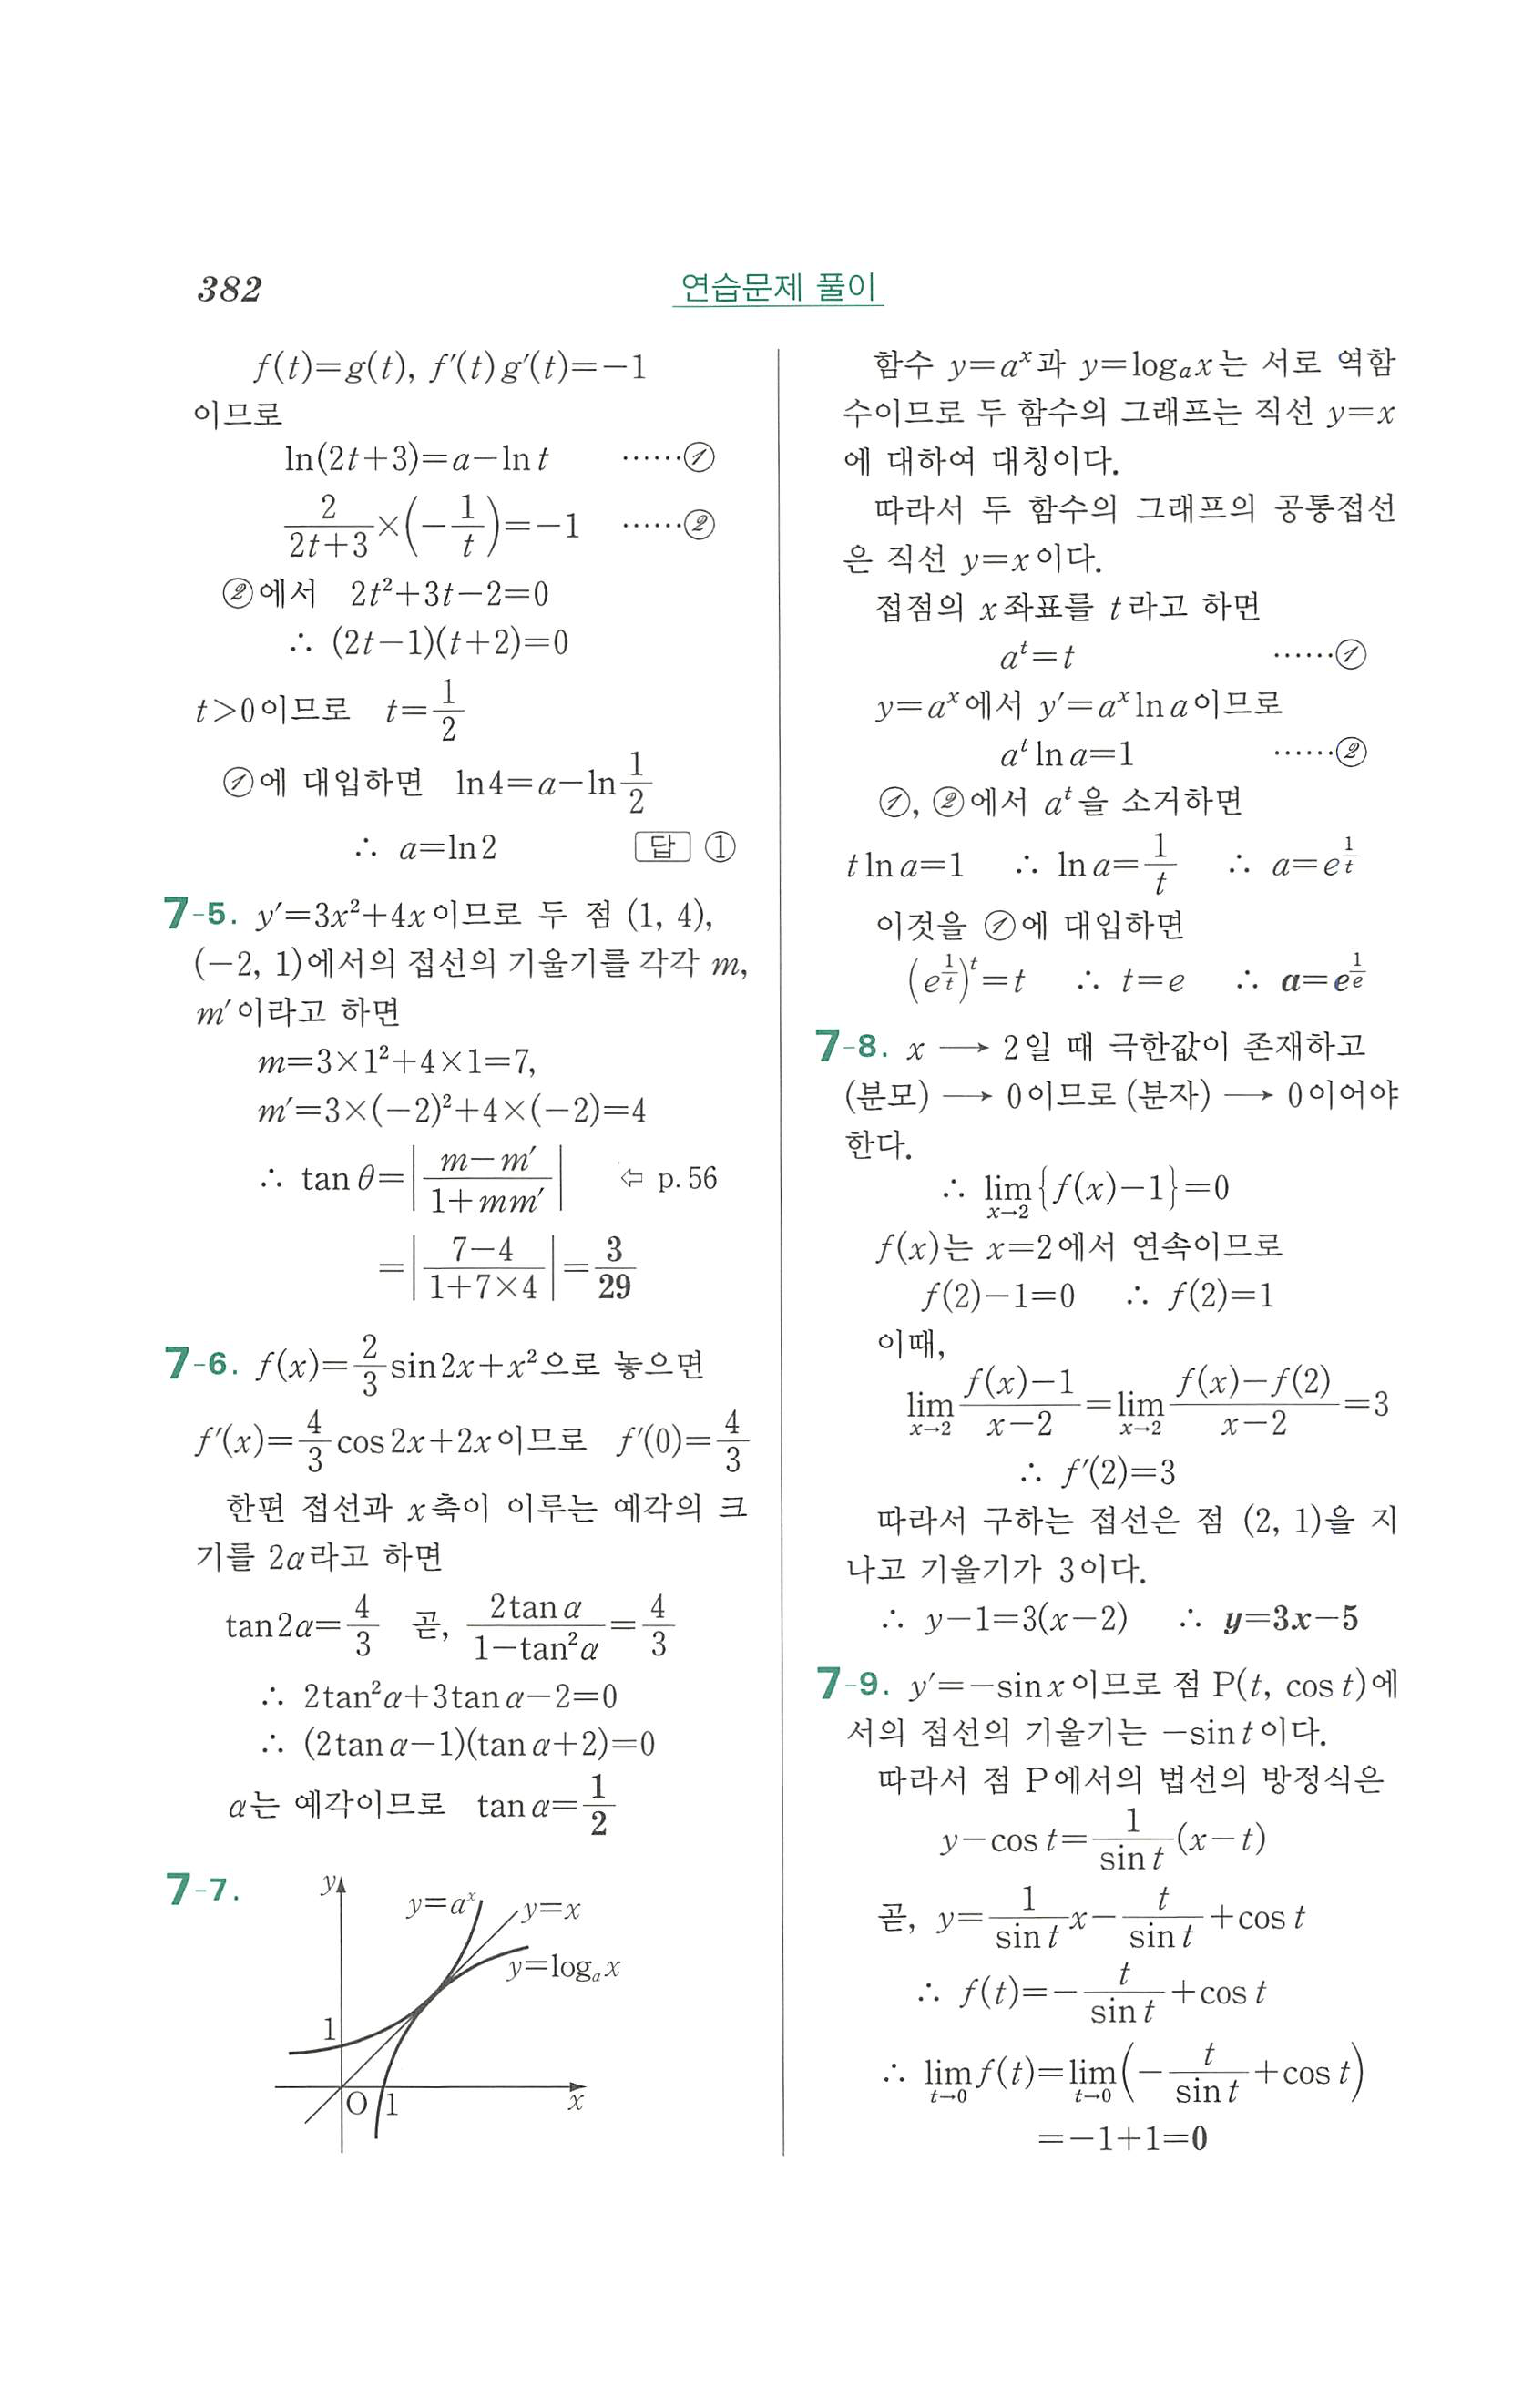 382
연습문제 풀이
f(t)=g(t), f′(t)g′(t)=−1
이므로
ln(2t+3)=a−ln t ⋯⋯①
2/(2t+3)×(−1/t)=−1 ⋯⋯②
②에서 2t²+3t−2=0
∴ (2t−1)(t+2)=0
t>0이므로 t=1/2
①에 대입하면 ln4=a−ln 1/2
∴ a=ln2 답 ①
7-5. y′=3x²+4x이므로 두 점 (1, 4),
(−2, 1)에서의 접선의 기울기를 각각 m,
m′이라고 하면
m=3×1²+4×1=7,
m′=3×(−2)²+4×(−2)=4
∴ tan θ=|(m−m′)/(1+mm′)| ⇦ p.56
=|(7−4)/(1+7×4)|=3/29
7-6. f(x)=2/3 sin2x+x²으로 놓으면
f′(x)=4/3 cos2x+2x이므로 f′(0)=4/3
한편 접선과 x축이 이루는 예각의 크
기를 2α라고 하면
tan2α=4/3 곧, 2tanα/(1−tan²α)=4/3
∴ 2tan²α+3tanα−2=0
∴ (2tanα−1)(tanα+2)=0
α는 예각이므로 tanα=1/2
7-7.
y
y=aˣ
y=x
y=logₐx
1
O
1
x
함수 y=aˣ과 y=logₐx는 서로 역함
수이므로 두 함수의 그래프는 직선 y=x
에 대하여 대칭이다.
따라서 두 함수의 그래프의 공통접선
은 직선 y=x이다.
접점의 x좌표를 t라고 하면
aᵗ=t ⋯⋯①
y=aˣ에서 y′=aˣln a이므로
aᵗ ln a=1 ⋯⋯②
①, ②에서 aᵗ을 소거하면
t ln a=1 ∴ ln a=1/t ∴ a=e^(1/t)
이것을 ①에 대입하면
(e^(1/t))ᵗ=t ∴ t=e ∴ a=e^(1/e)
7-8. x ⟶ 2일 때 극한값이 존재하고
(분모) ⟶ 0이므로 (분자) ⟶ 0이어야
한다.
∴ lim x→2 {f(x)−1}=0
f(x)는 x=2에서 연속이므로
f(2)−1=0 ∴ f(2)=1
이때,
lim x→2 (f(x)−1)/(x−2)=lim x→2 (f(x)−f(2))/(x−2)=3
∴ f′(2)=3
따라서 구하는 접선은 점 (2, 1)을 지
나고 기울기가 3이다.
∴ y−1=3(x−2) ∴ y=3x−5
7-9. y′=−sinx이므로 점 P(t, cos t)에
서의 접선의 기울기는 −sin t이다.
따라서 점 P에서의 법선의 방정식은
y−cos t=1/sin t (x−t)
곧, y=1/sin t x−t/sin t+cos t
∴ f(t)=−t/sin t+cos t
∴ lim t→0 f(t)=lim t→0 (−t/sin t+cos t)
=−1+1=0